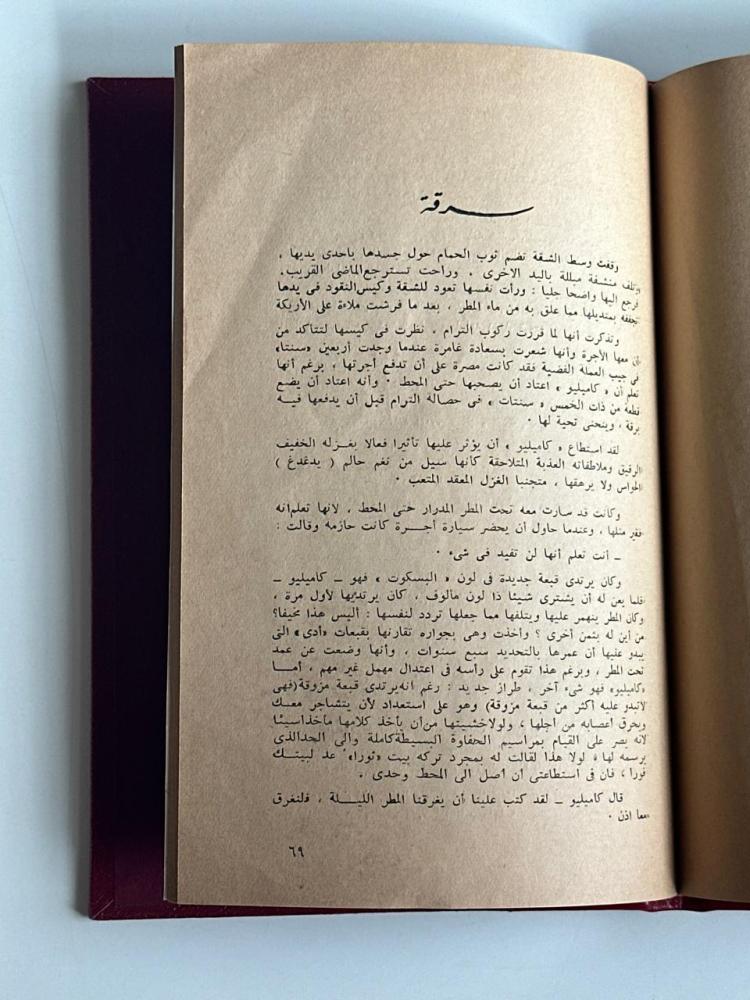 سرقة
وقفت وسط الشقة تضم ثوب الحمام حول جسدها باحدى يديها ،
وتلف منشفة مبللة باليد الاخرى . وراحت تسترجع الماضى القريب.
فرجع اليها واضحا جليا : ورأت نفسها تعود للشقة وكيس النقود فى يدها
تجففه بمنديلها مما علق به من ماء المطر ، بعد ما فرشت ملاءة على الأريكة
وتذكرت أنها لما قررت ركوب الترام ، نظرت فى كيسها لتتأكد من
أن معها الأجرة وأنها شعرت بسعادة غامرة عندما وجدت أربعين «سنتا»
فى جيب العملة الفضية فقد كانت مصرة على أن تدفع أجرتها ، برغم أنها
تعلم أن « كاميليو » اعتاد أن يصحبها حتى المحط . وأنه اعتاد أن يضع
قطعة من ذات الخمس « سنتات » فى حصالة الترام قبل أن يدفعها فيه
برقة ، وينحنى تحية لها .
لقد استطاع « كاميليو » أن يؤثر عليها تأثيرا فعالا بغزله الخفيف
الرقيق وملاطفاته العذبة المتلاحقة كأنها سبيل من نغم حالم ( يدغدغ )
الحواس ولا يرهقها ، متجنبا الغزل المعقد المتعب .
وكانت قد سارت معه تحت المطر المدرار حتى المحط ، لانها تعلم انه
فقير مثلها ، وعندما حاول أن يحضر سيارة أجرة كانت حازمه وقالت :
ــ أنت تعلم أنها لن تفيد فى شىء .
وكان يرتدى قبعة جديدة فى لون « البسكوت » فهو ــ كاميليو ــ
قلما يعن له أن يشترى شيئا ذا لون مالوف ، كان يرتديها لأول مرة ،
وكان المطر ينهمر عليها ويتلفها مما جعلها تردد لنفسها : أليس هذا مخيفا؟
من أين له بثمن أخرى ؟ وأخذت وهى بجواره تقارنها بقبعات «أدى» التى
يبدو عليها أن عمرها بالتحديد سبع سنوات ، وأنها وضعت عن عمد
تحت المطر ، وبرغم هذا تقوم على رأسه فى اعتدال مهمل غير مهم ، أما
«كاميليو» فهو شىء آخر ، طراز جديد : رغم انه يرتدى قبعة مزوقة (فهى
لاتبدو عليه أكثر من قبعة مزوقة) وهو على استعداد لأن يتشاجر معك
ويحرق أعصابه من اجلها ، ولولا خشيتها من أن يأخذ كلامها مأخذا سيئا
لانه يصر على القيام بمراسيم الحفاوة البسيطة كاملة والى الحد الذى
يرسمه لها » لولا هذا لقالت له بمجرد تركه بيت «ثورا» عد لبيتك
فورا ، فان فى استطاعتى أن أصل الى المحط وحدى .
قال كاميليو ــ لقد كتب علينا أن يغرقنا المطر الليلة ، فلنغرق
معا اذن .
٦٩